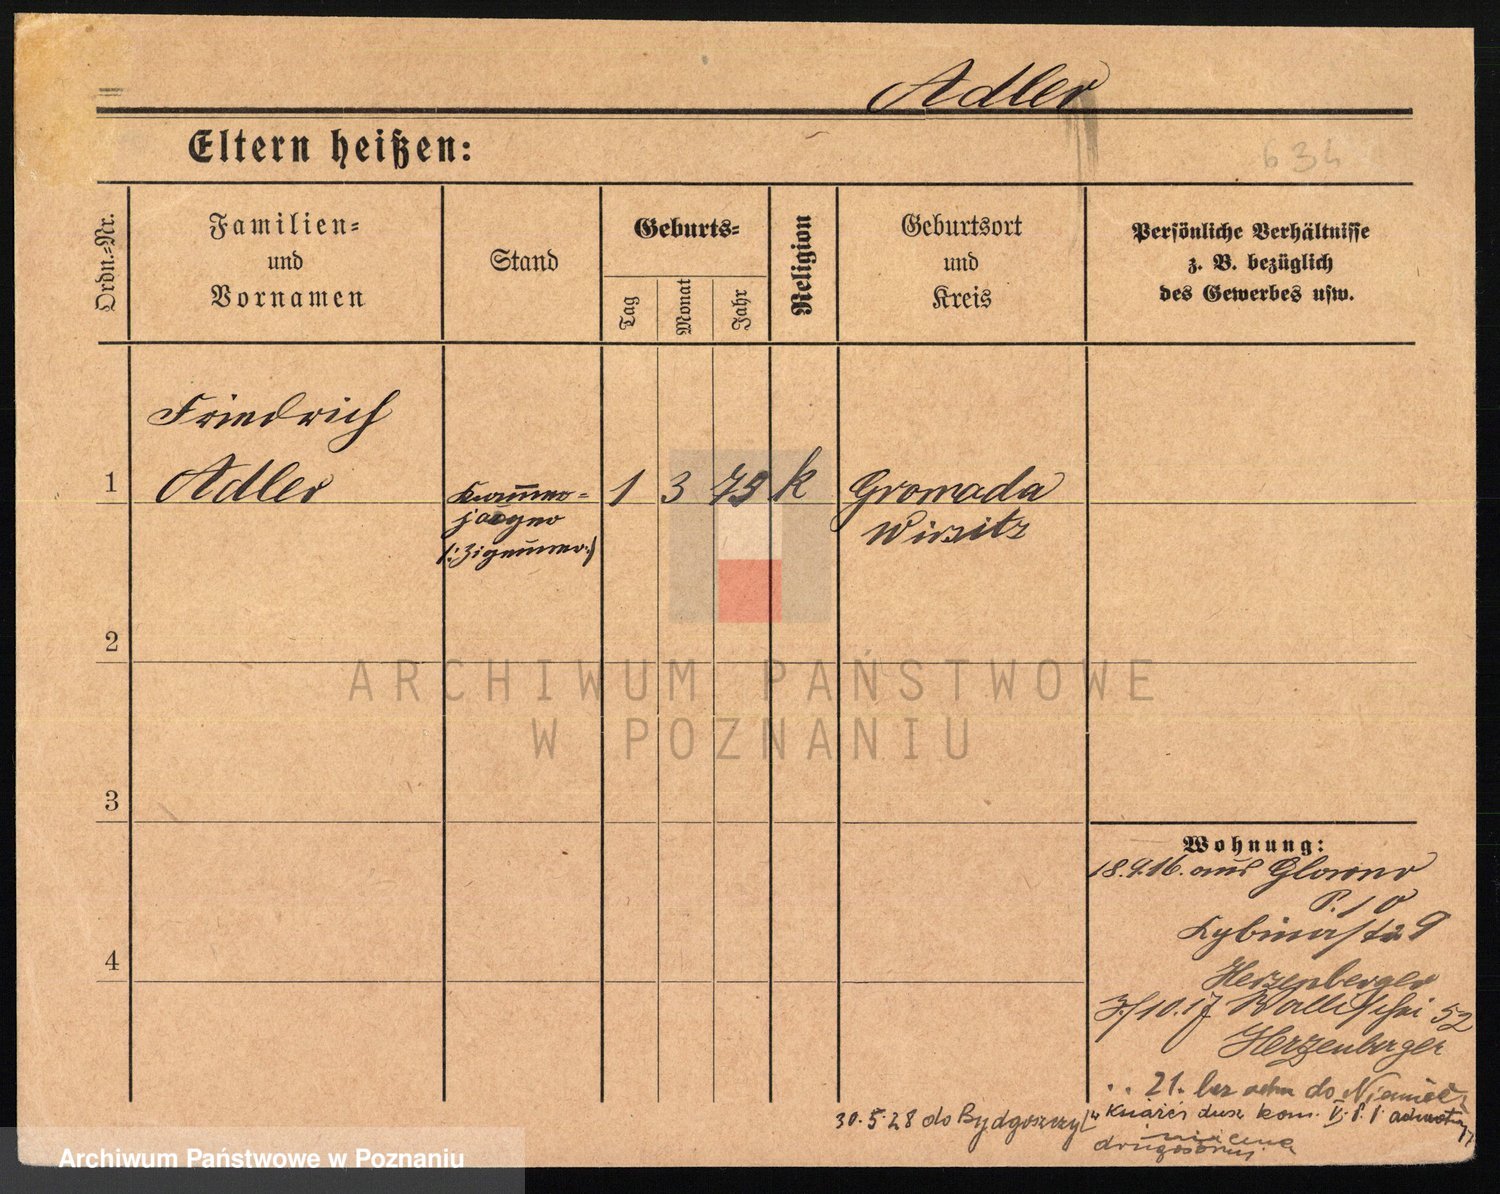 Adler
Eltern heißen:
634
Ordn.-Nr.
Familien-
und
Vornamen
Stand
Geburts-
Tag
Monat
Jahr
Religion
Geburtsort
und
Kreis
Persönliche Verhältnisse
z. B. bezüglich
des Gewerbes usw.
Friedrich
1 Adler 1 3 79 k Gromada
Wirsitz
jäger
(:Zigeuner:)
2
3
4
Wohnung:
18.4.16. aus Glowno
P. 10
9
Herzenberger
3/10.17 Wallischei 52
Herzenberger
21. bez adm do Niemiec
30.5.28 do Bydgoszczy
Książ dusz kom. V. P. P.
ARCHIWUM PAŃSTWOWE
W POZNANIU
Archiwum Państwowe w Poznaniu